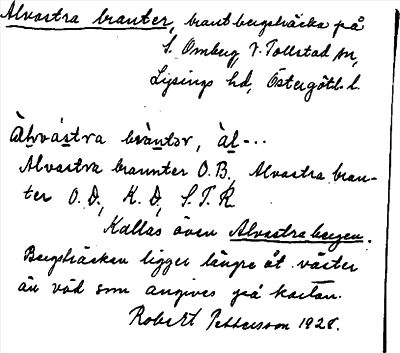 Alvastra branter, brant bergsbräcka på
S. Omberg V. Tollstad sn,
Lysings hd, Östergötl. l.
Àlvástra bràntər, àl---
Alvastra brannter O.B., Alvastra bran-
ter O.D., K.D., S.T.R.
Kallas även Alvastra bergen.
Bergsbräckan ligger längre åt väster
än vad som angives på kartan.
Robert Pettersson 1928.